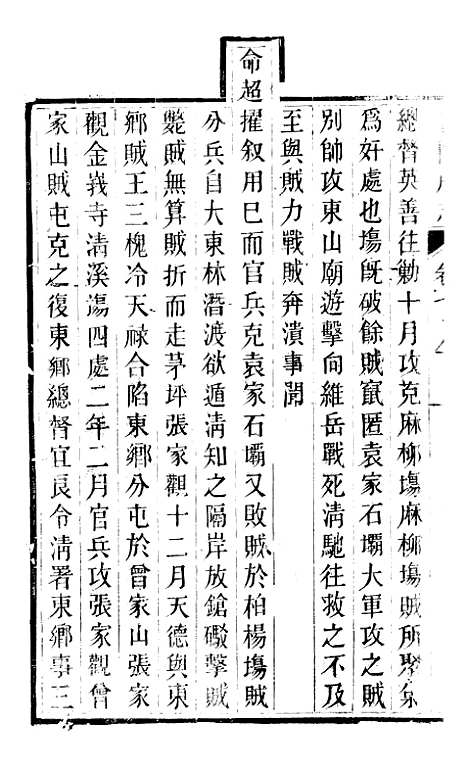 總督英善往勦十月攻克麻柳塲麻柳塲賊所聚糸
爲奸處也塲旣破餘賊竄匿袁家石壩大軍攻之賊
別帥攻東山廟遊擊向維岳戰死淸馳往救之不及
至與賊力戰賊奔潰事聞
命超擢叙用巳而官兵克袁家石壩又敗賊於柏楊塲賊
分兵自大東林潛渡欲遁淸知之隔岸放鎗礮擊賊
斃賊無算賊折而走茅坪張家觀十二月天德與東
鄉賊王三槐冷天祿合陷東鄉分屯於曾家山張家
觀金峩寺淸溪塲四處二年二月官兵攻張家觀曾
家山賊屯克之復東鄉總督宜良令淸署東鄉事三